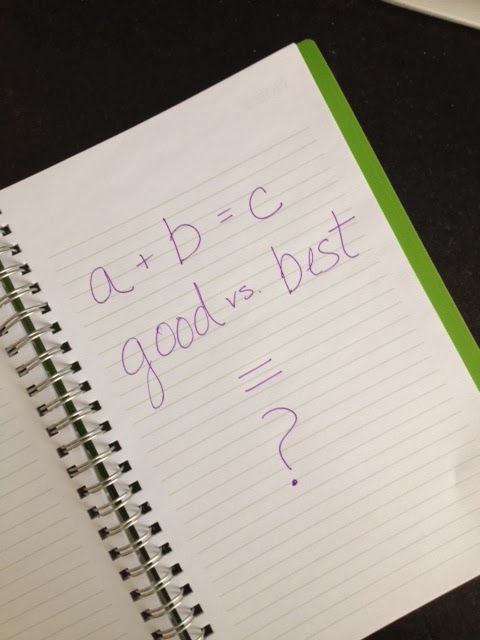 a + b = c
good vs. best
=
?